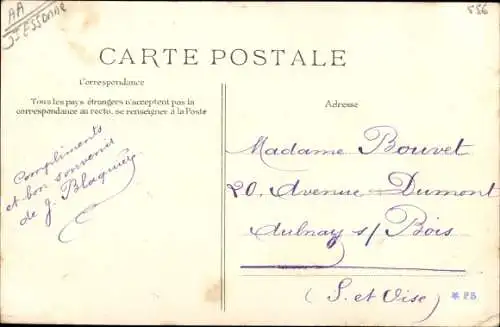 AA
556
CARTE POSTALE
Correspondance
Tous les pays étrangers n'acceptent pas la
correspondance au recto, se renseigner à la Poste
Compliments
et bon souvenir
de J. Blaquier
Adresse
Madame Bouvet
20, Avenue Dumont
Aulnay s/ Bois
(S. et Oise)